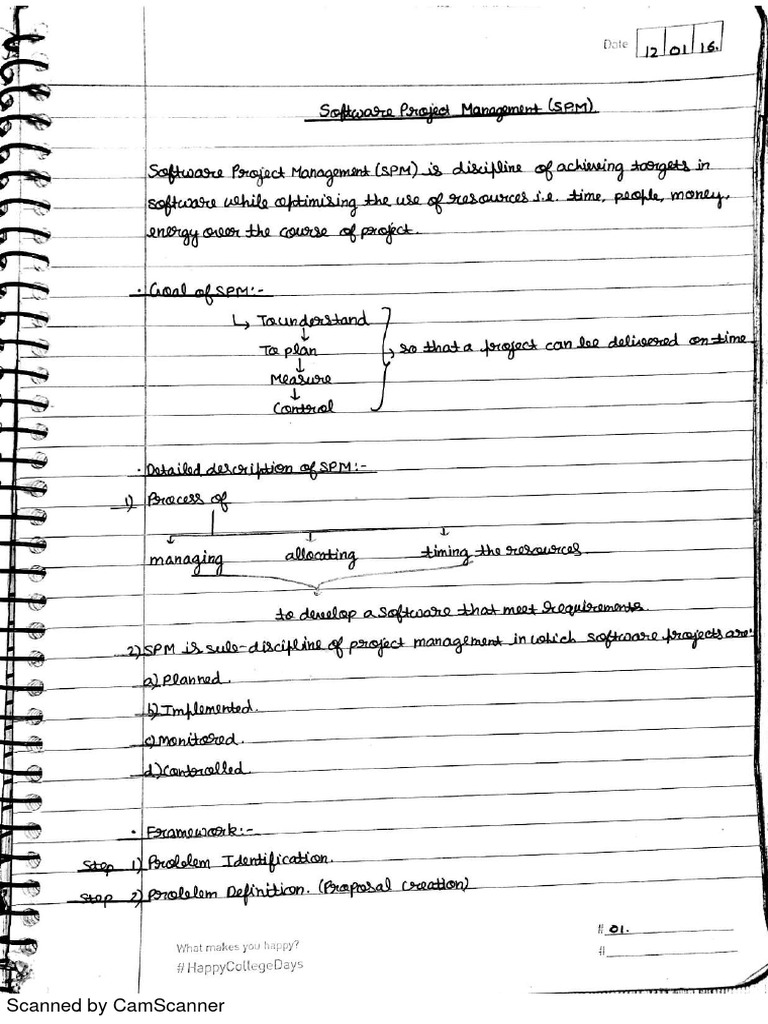 Date 12 01 16.
Software Project Management (SPM)
Software Project Management (SPM) is discipline of achieving targets in
software while optimising the use of resources i.e. time, people, money,
energy over the course of project.
· Goal of SPM:-
↳ To understand
↓
To plan
↓
Measure
↓
Control
→ so that a project can be delivered on time
· Detailed description of SPM:-
1) Process of
managing allocating timing the resources
to develop a software that meet requirements.
2) SPM is sub-discipline of project management in which software projects are:
a) Planned.
b) Implemented.
c) Monitored.
d) Controlled.
· Framework:-
Step 1) Problem Identification.
Step 2) Problem Definition. (Proposal creation)
# 01.
#
What makes you happy?
#HappyCollegeDays
Scanned by CamScanner